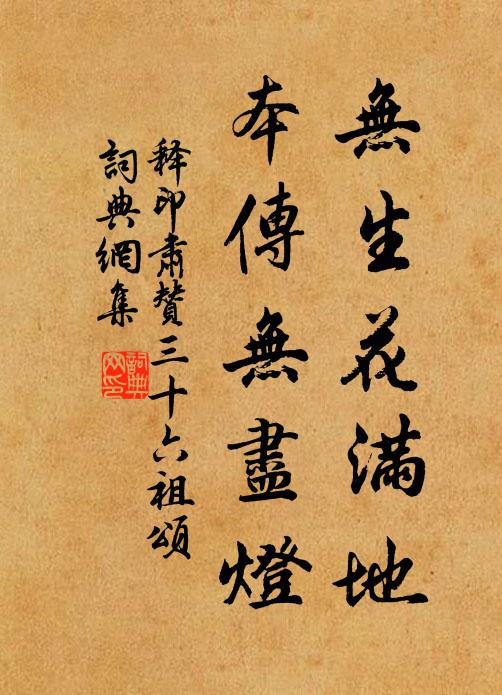 無生花滿地
本傳無盡燈
释印肅贊三十六祖頌
詞典網集
詞典
网印